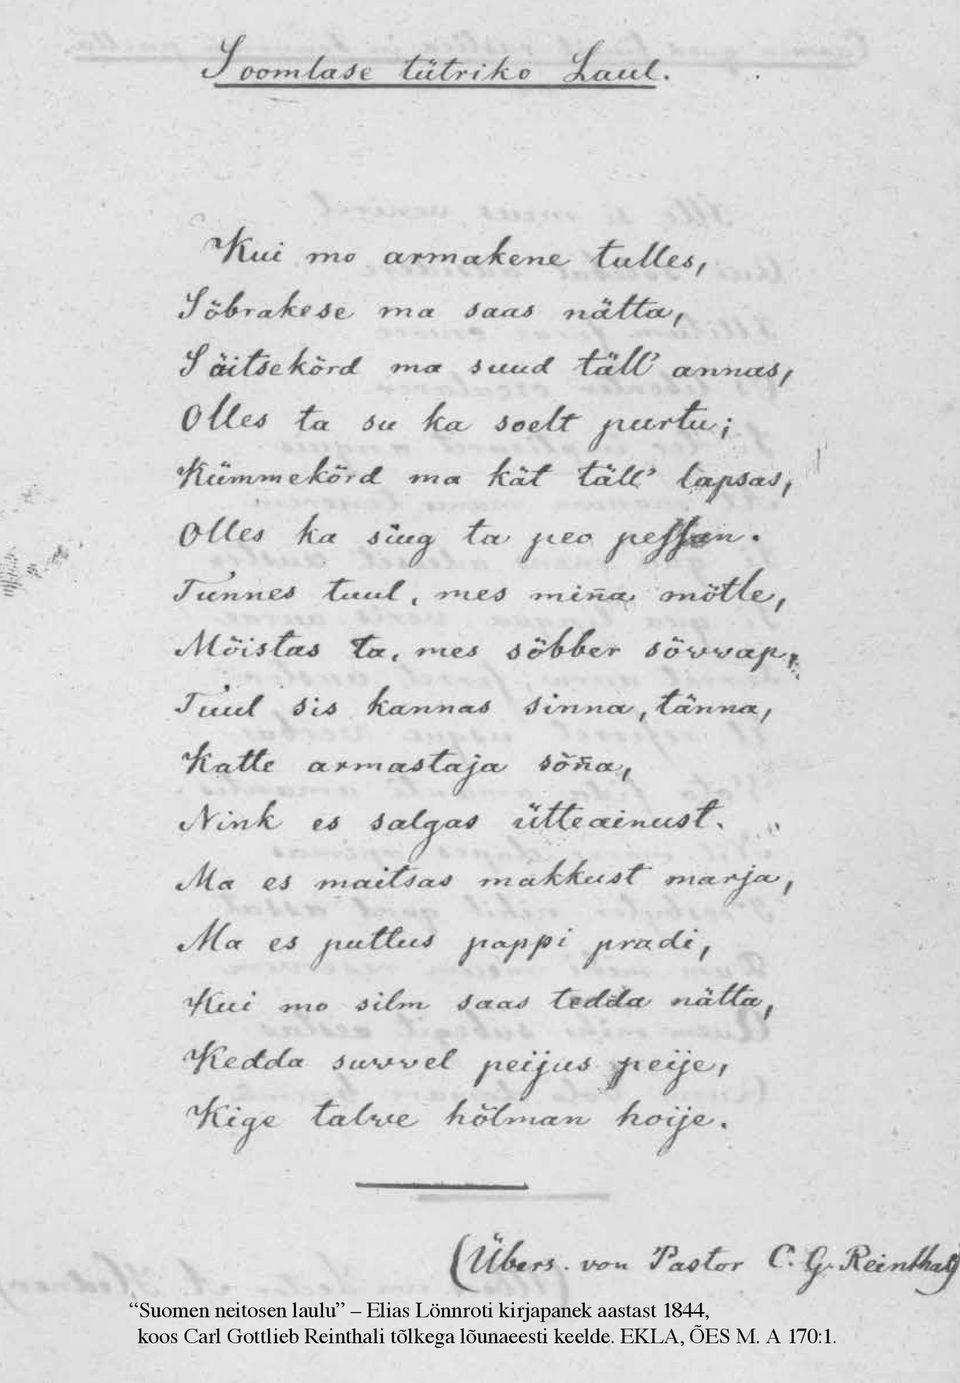 Soomlase tütriko Laul.
Kui mo armakene tulles,
Söbrakese ma saas nätta,
Säitsekörd ma suud täll' annas,
Olles ta su ka soelt purtu;
Kümmekörd ma kät täll' lapsas,
Olles ka siug ta peo pessan.
Tunnes tuul, mes miña mötle,
Möistas ta, mes söbber söwwap,
Tuul sis kannas sinna, tänna,
Katte armastaja söña,
Nink es salgas ütteainust.
Ma es maitsas makkust marja,
Ma es puttus pappi pradi,
Kui mo silm saas tedda nätta,
Kedda suwwel peijus peije,
Kige talwe hölman hoije.
(Übers. von Pastor C. G. Reinthal)
“Suomen neitosen laulu” – Elias Lönnroti kirjapanek aastast 1844,
koos Carl Gottlieb Reinthali tõlkega lõunaeesti keelde. EKLA, ÕES M. A 170:1.